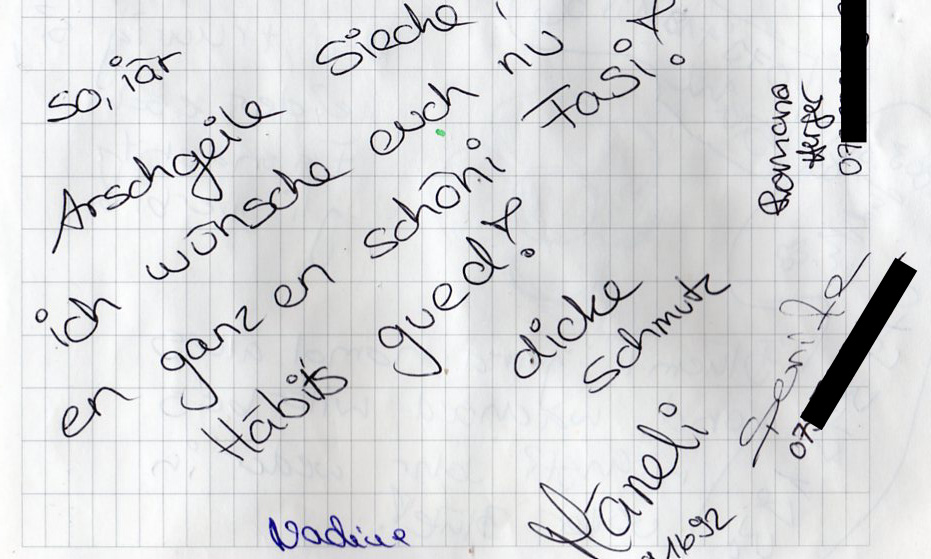 so, iär
Arschgeile Sieche!
ich wünsche euch nu
en ganz en schöni Fasi!
Häbits gued!
dicke
Schmutz
Näneli
Nadine
Romana
Herger
07
07